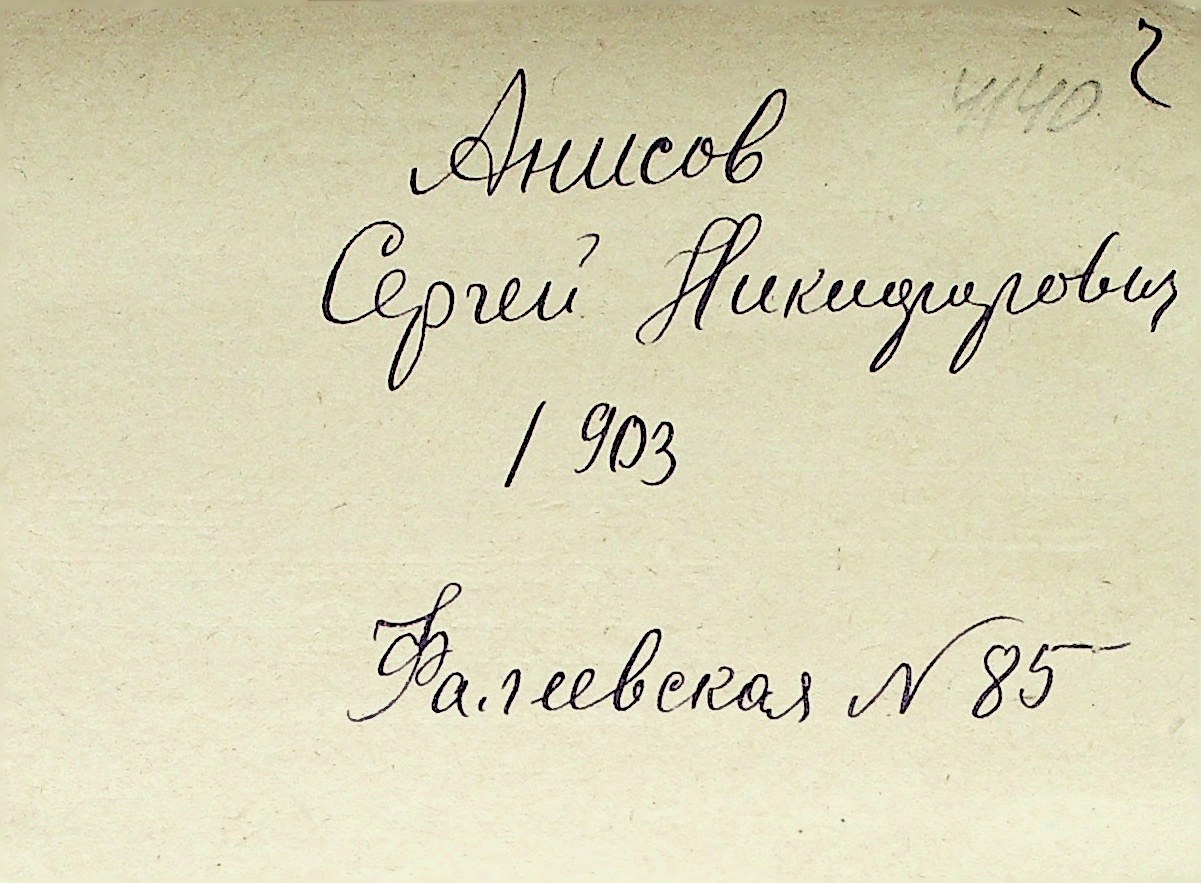 ч
4140
Анисов
Сергей Никифорович
1903
Фалеевская N 85